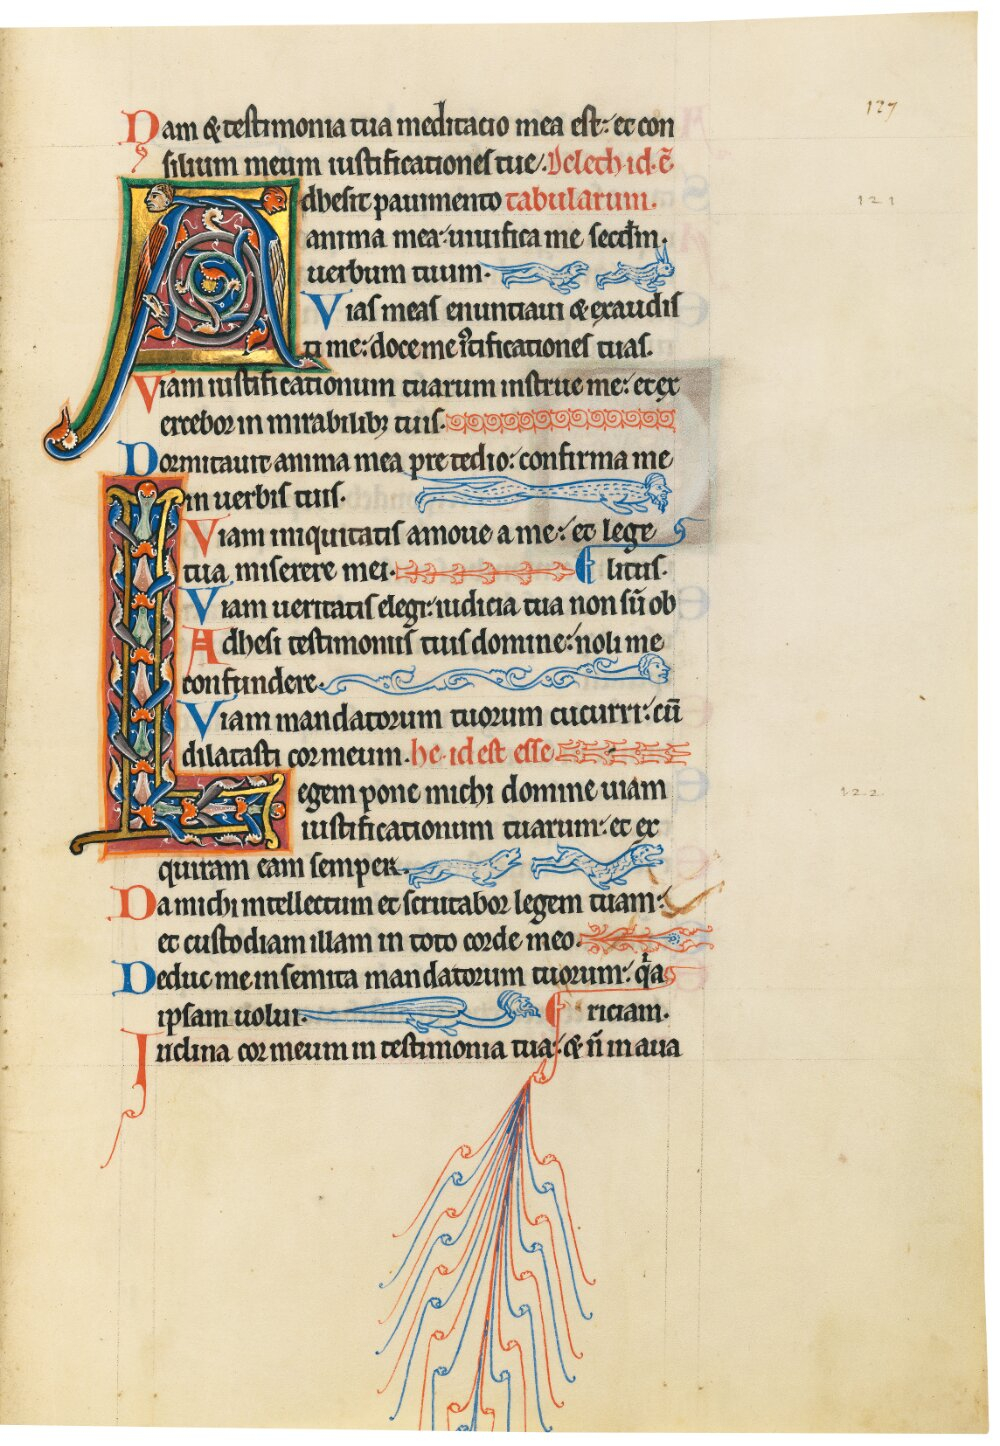 137
Nam & testimonia tua meditacio mea est: et con
silium meum iustificationes tue. Delech. id. ē
Adhesit pauimento tabularum.
121
anima mea: uiuifica me secdm
uerbum tuum.
Vias meas enuntiaui & exaudis
ti me: doce me iustificationes tuas.
Viam iustificationum tuarum instrue me: et ex
ercebor in mirabilibȝ tuis.
Dormitauit anima mea pre tedio: confirma me
in uerbis tuis.
Viam iniquitatis amoue a me: et lege
tua miserere mei. litus.
Viam ueritatis elegi: iudicia tua non sū ob
Adhesi testimoniis tuis domine: noli me
confundere.
Viam mandatorum tuorum cucurri: cū
dilatasti cor meum. he. id est esse
Legem pone michi domine uiam
122
iustificationum tuarum: et ex
quiram eam semper.
Da michi intellectum et scrutabor legem tuam:
et custodiam illam in toto corde meo.
Deduc me in semita mandatorum tuorum: qia
ipsam uolui. riciam.
Inclina cor meum in testimonia tua: & n̄ in aua